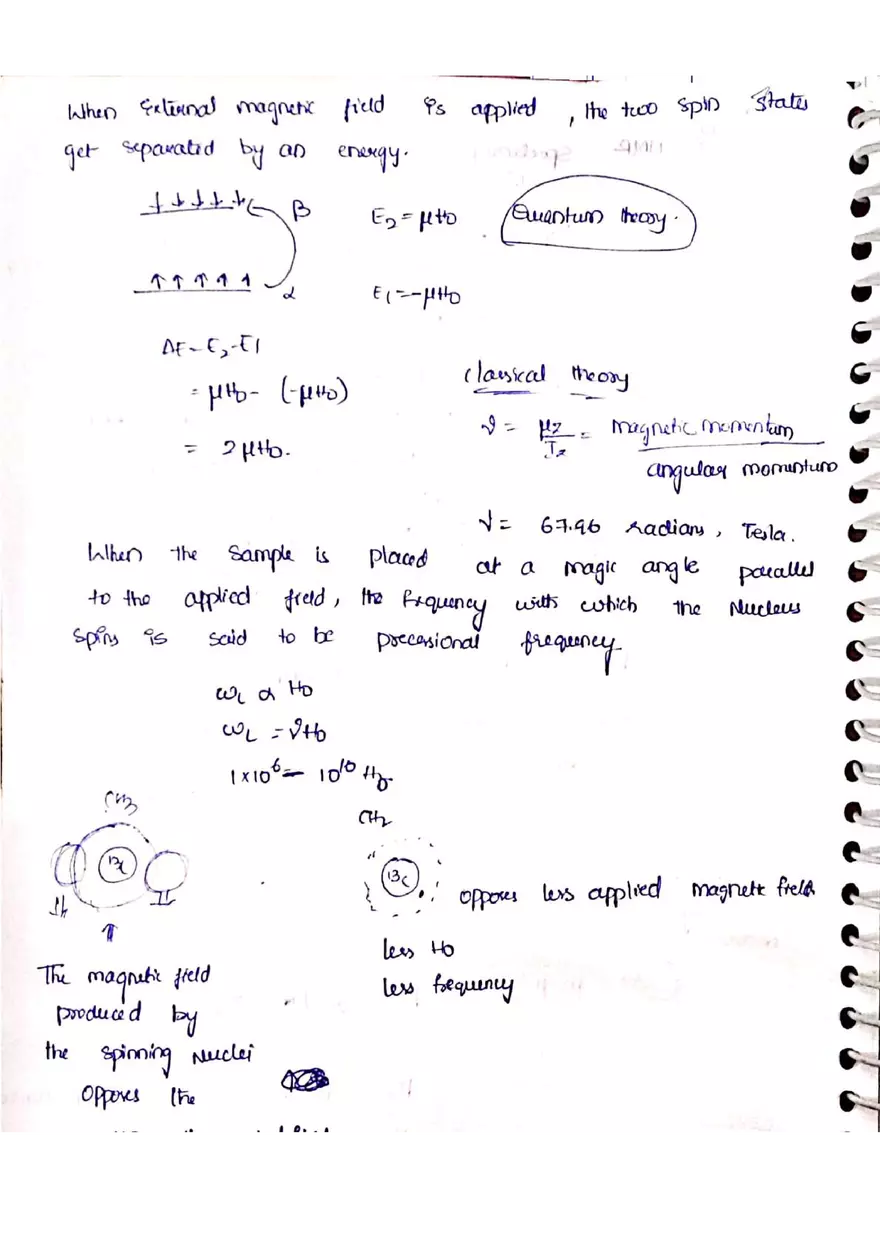 When External magnetic field is applied, the two spin states
get separated by an energy.
β E2 = μH0 Quantum theory.
α E1 = -μH0
ΔE = E2-E1
= μH0 - (-μH0)
= 2μH0.
Classical theory
γ = μz/Iz = magnetic momentum / angular momentum
γ = 67.96 radians, Tesla.
When the sample is placed at a magic angle parallel
to the applied field, the frequency with which the Nucleus
spins is said to be precessional frequency
ωL α H0
ωL = γH0
1×10^6 - 10^10 Hz
CH3 CH2
13C
13C opposes less applied magnetic field
less H0
less frequency
The magnetic field
produced by
the spinning Nuclei
opposes the